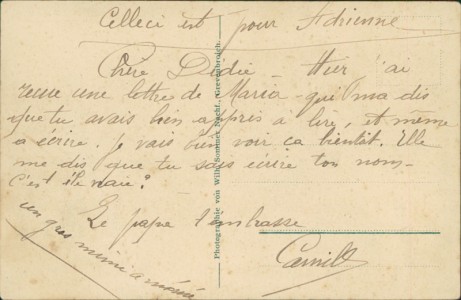 Celleci est pour Adrienne
Chère Dédie - Hier j'ai
reçue une lettre de Maria qui ma dis
que tu avais bien appris à lire, et meme
a écrire. Je vais bien voir ça bientôt. Elle
me dis que tu sais écrire ton nom -
C'est il vraie?
Le papa t'embrasse
Camille
un gros mimi a mémé
Photographie von Wilh. Sommer Nachf., Grevenbroich.